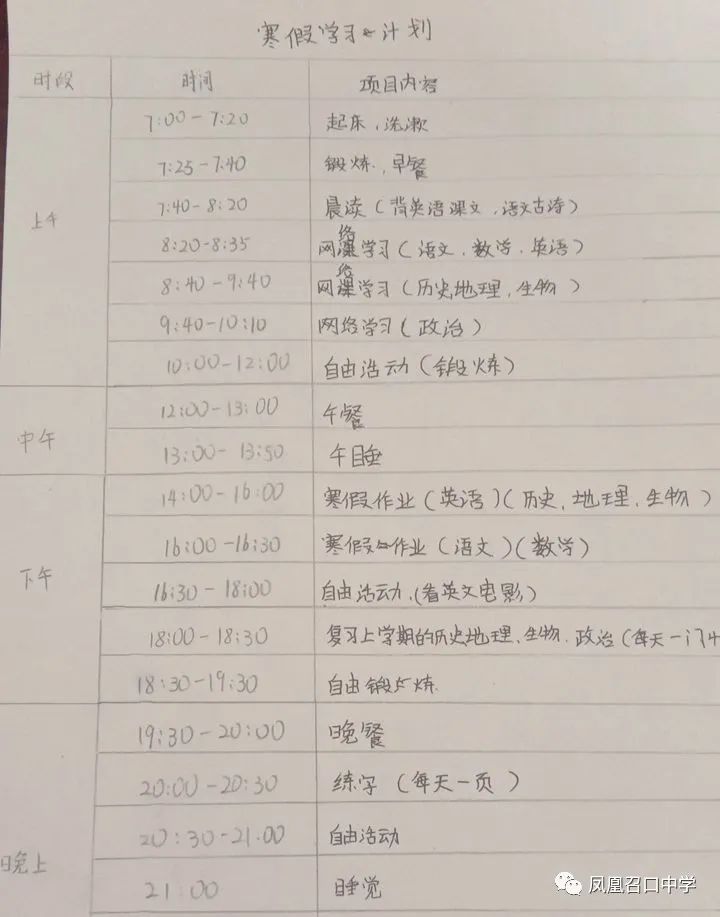 寒假学习计划
时段 时间 项目内容
上午 7:00-7:20 起床,洗漱
7:25-7:40 锻炼,早餐
7:40-8:20 晨读(背英语课文,语文古诗)
8:20-8:35 网络学习(语文、数学、英语)
8:40-9:40 网络学习(历史地理,生物)
9:40-10:10 网络学习(政治)
10:00-12:00 自由活动(锻炼)
中午 12:00-13:00 午餐
13:00-13:50 午睡
下午 14:00-16:00 寒假作业(英语)(历史,地理,生物)
16:00-16:30 寒假作业(语文)(数学)
16:30-18:00 自由活动(看英文电影)
18:00-18:30 复习上学期的历史地理、生物、政治(每天一门
18:30-19:30 自由锻炼
晚上 19:30-20:00 晚餐
20:00-20:30 练字(每天一页)
20:30-21:00 自由活动
21:00 睡觉
凤凰召口中学